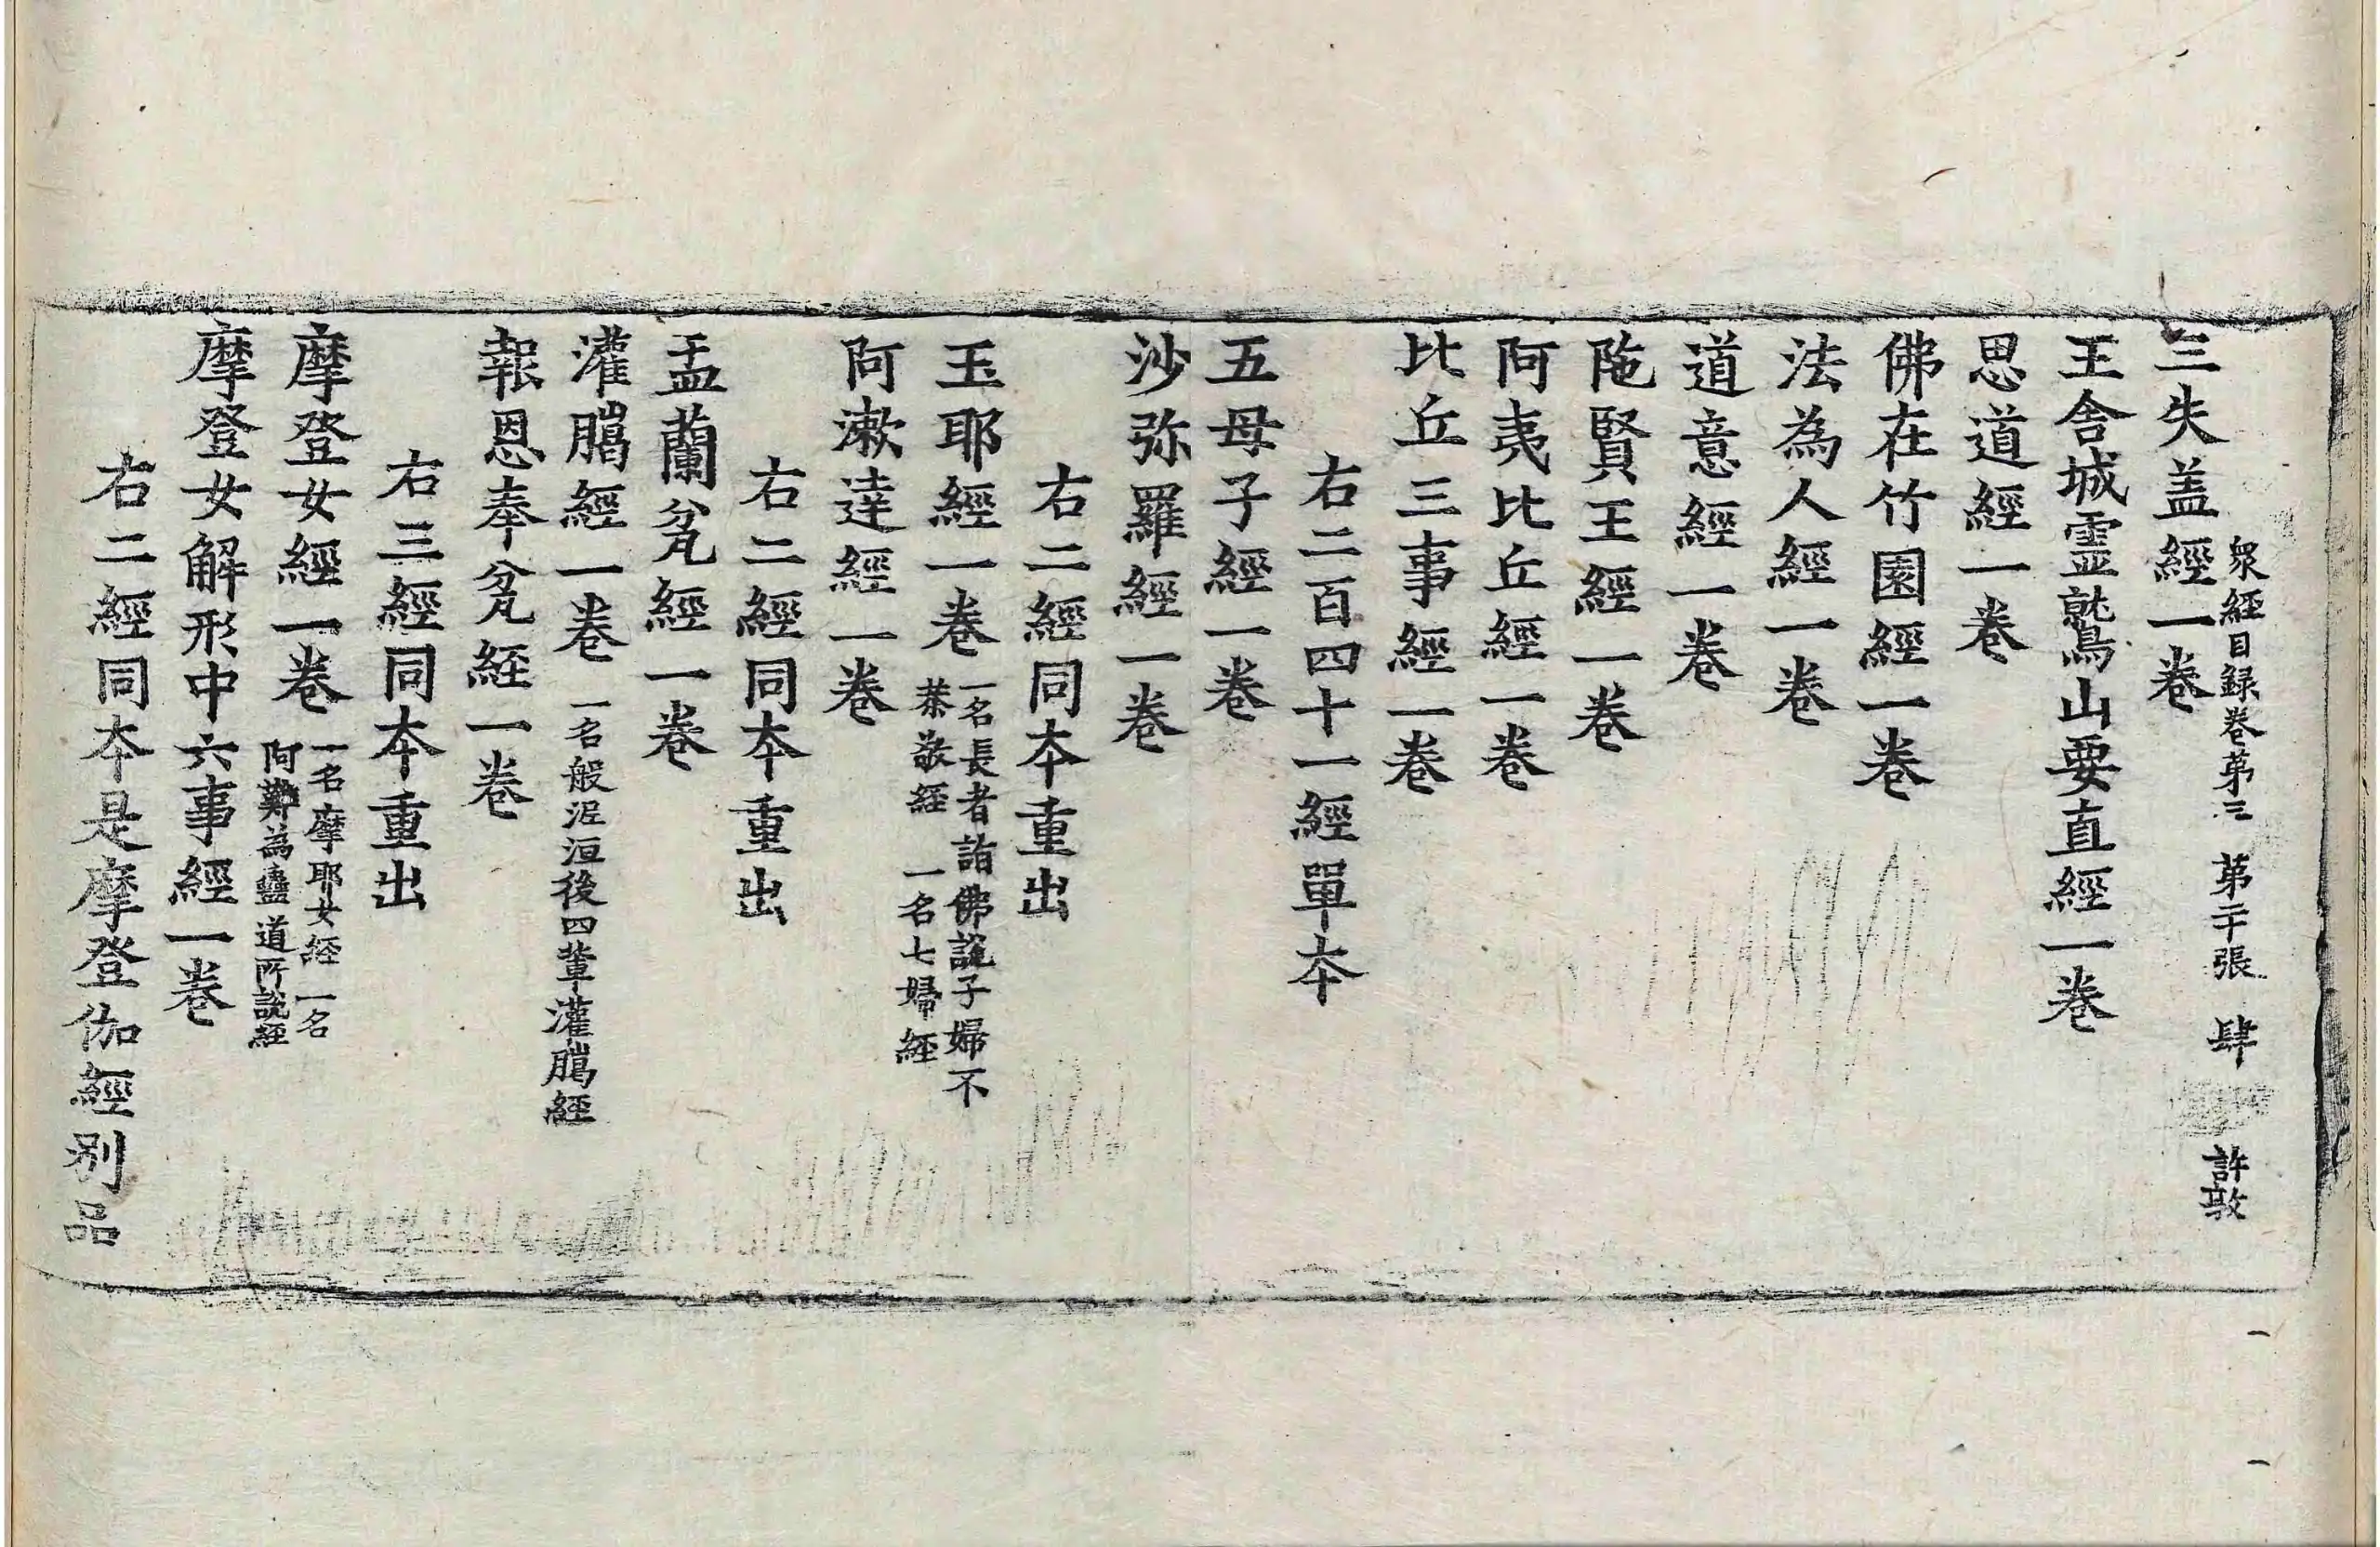 衆經目録卷第三　第二十張　肆　許敦
三失盖經一卷
王舍城霊鷲山要直經一卷
思道經一卷
佛在竹園經一卷
法為人經一卷
道意經一卷
陁賢王經一卷
阿夷比丘經一卷
比丘三事經一卷
右二百四十一經單夲
五母子經一卷
沙弥羅經一卷
右二經同夲重出
玉耶經一卷 一名長者詣佛說子婦不
恭敬経　一名七婦経
阿漱達經一卷
右二經同夲重出
盂蘭瓫經一卷
灌臈經一卷 一名般泥洹後四輩灌臈経
報恩奉瓫経一卷
右三經同夲重出
摩登女經一卷 一名摩耶女経　一名
阿難為蠱道所說経
摩登女解形中六事經一卷
右二經同夲是摩登伽經别品